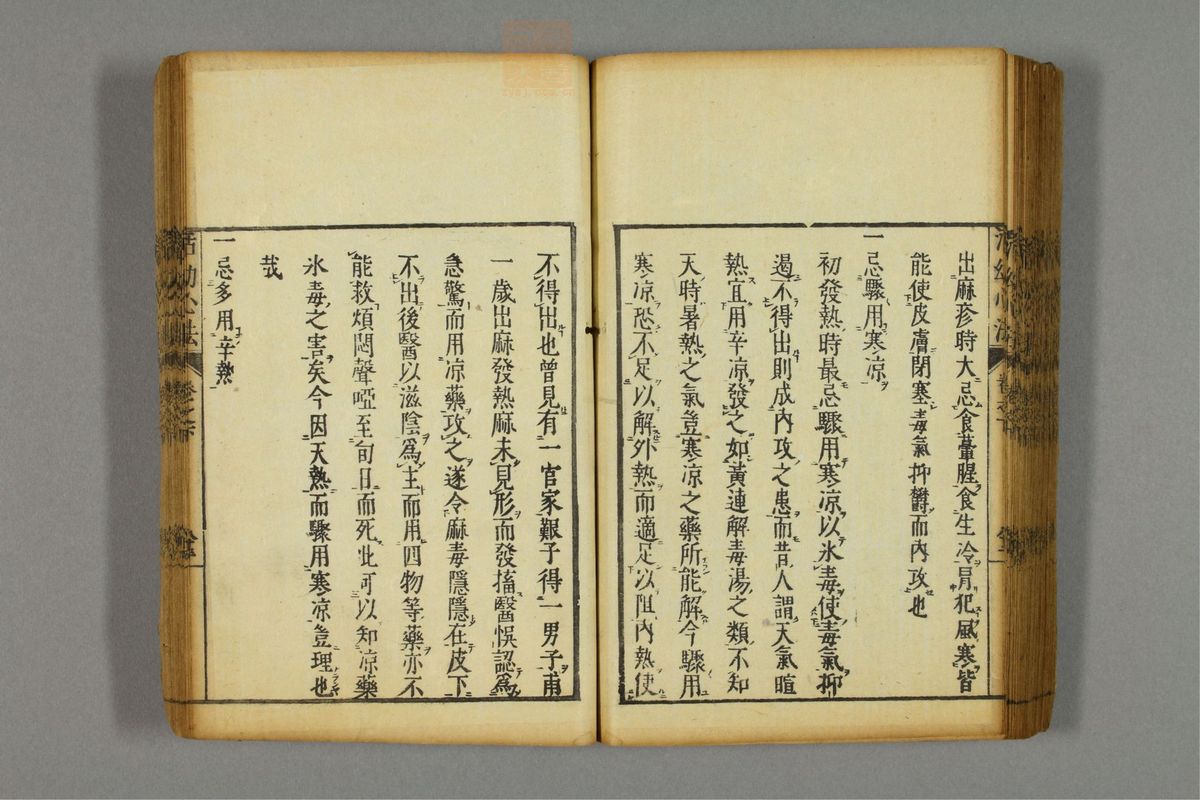 出麻疹時大忌食葷腥食生冷冐犯風寒皆
能使皮膚閉塞毒氣抑欝而內攻也
一
忌驟用寒凉
初發熱時最忌驟用寒凉以氷毒使毒氣抑
遏不得出則成內攻之患而昔人謂天氣暄
熱宜用辛凉發之如黃連解毒湯之類不知
天時暑熱之氣豈寒凉之藥所能解今驟用
寒凉恐不足以解外熱而適足以阻內熱使
不得出也曾見有一官家艱子得一男子甫
一歲出麻發熱麻未見形而發搐醫悞認爲
急驚而用凉藥攻之遂令麻毒隱隱在皮下
不出後醫以滋陰爲主而用四物等藥亦不
能救煩悶聲啞至旬日而死此可以知凉藥
氷毒之害矣今因天熱而驟用寒凉豈理也
哉
一
忌多用辛熱
活幼心法
卷之下